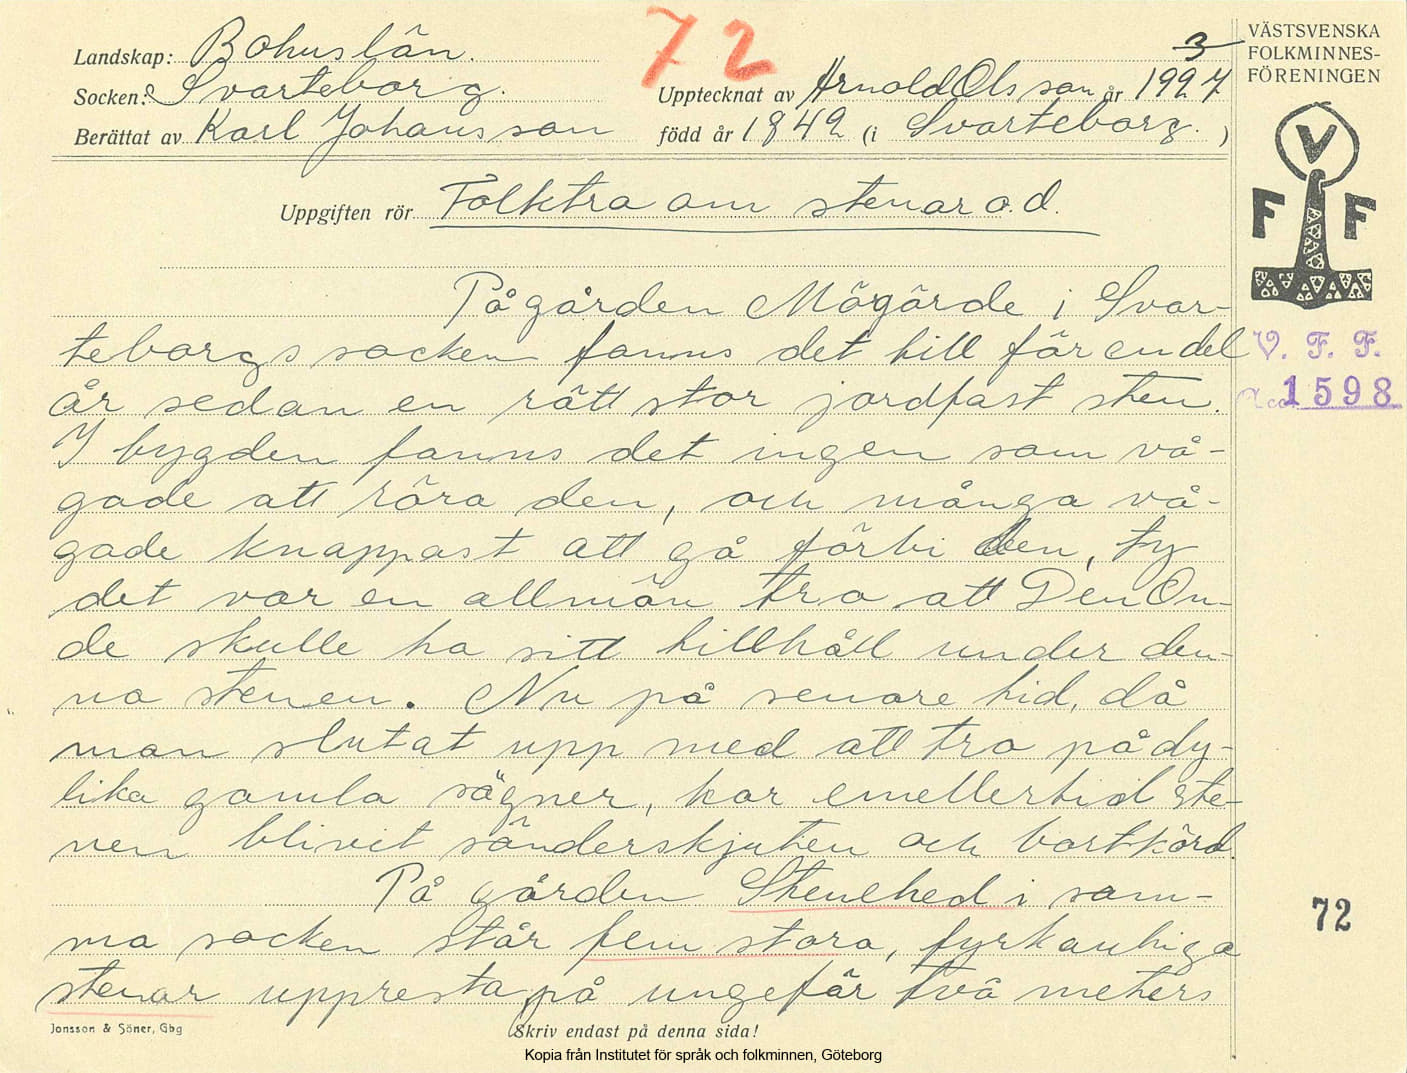 72
Landskap: Bohuslän.
Socken: Svarteborg.
Berättat av Karl Johansson
Upptecknat av Arnold Olsson år 1927
3
född år 1842 (i Svarteborg. )
VÄSTSVENSKA
FOLKMINNES-
FÖRENINGEN
V
F F
Uppgiften rör Folktro om stenar o.d.
På gården Mögärde i Svar-
teborgs socken fanns det till för en del
år sedan en rätt stor jordfast sten.
I bygden fanns det ingen som vå-
gade att röra den, och många vå-
gade knappast att gå förbi den, ty
det var en allmän tro att Den On-
de skulle ha sitt tillhåll under den-
na stenen. Nu på senare tid, då
man slutat upp med att tro på dy-
lika gamla sägner, har emellertid ste-
nen blivit sönderskjuten och bortkörd.
På gården Stenehed i sam-
ma socken står fem stora, fyrkantiga
stenar uppresta på ungefär två meters
V. F. F.
Acc. 1598
72
Jonsson & Söner, Gbg
Skriv endast på denna sida!
Kopia från Institutet för språk och folkminnen, Göteborg